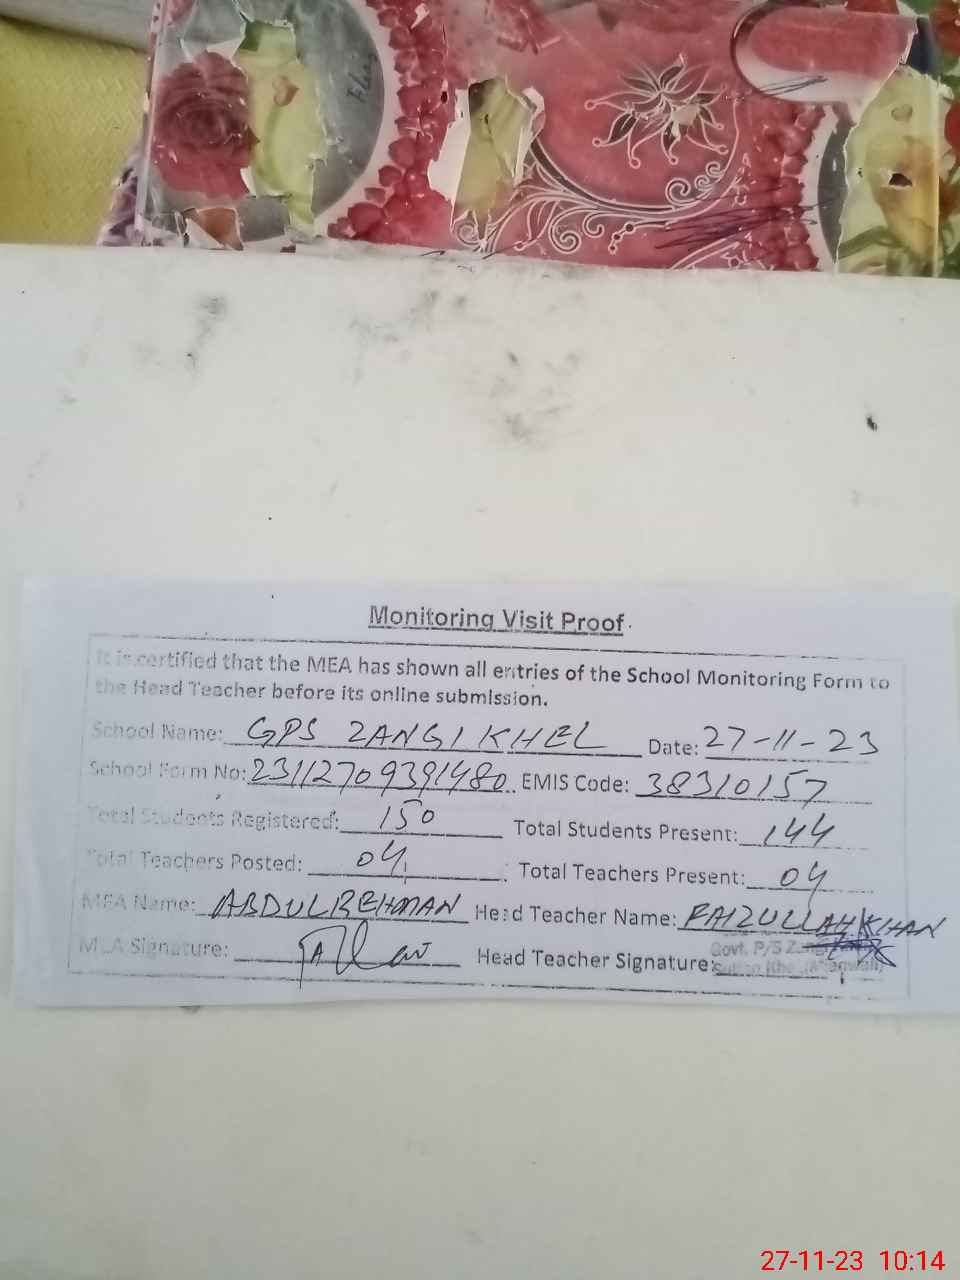 Monitoring Visit Proof.
It is certified that the MEA has shown all entries of the School Monitoring Form to
the Head Teacher before its online submission.
School Name: GPS ZANGI KHEL Date: 27-11-23
School Form No: 23112709391480 EMIS Code: 38310157
Total Students Registered: 150 Total Students Present: 144
Total Teachers Posted: 04 Total Teachers Present: 04
MEA Name: ABDULREHMAN Head Teacher Name: FAIZULLAH KHAN
MEA Signature: Head Teacher Signature:
Govt. P/S
27-11-23 10:14